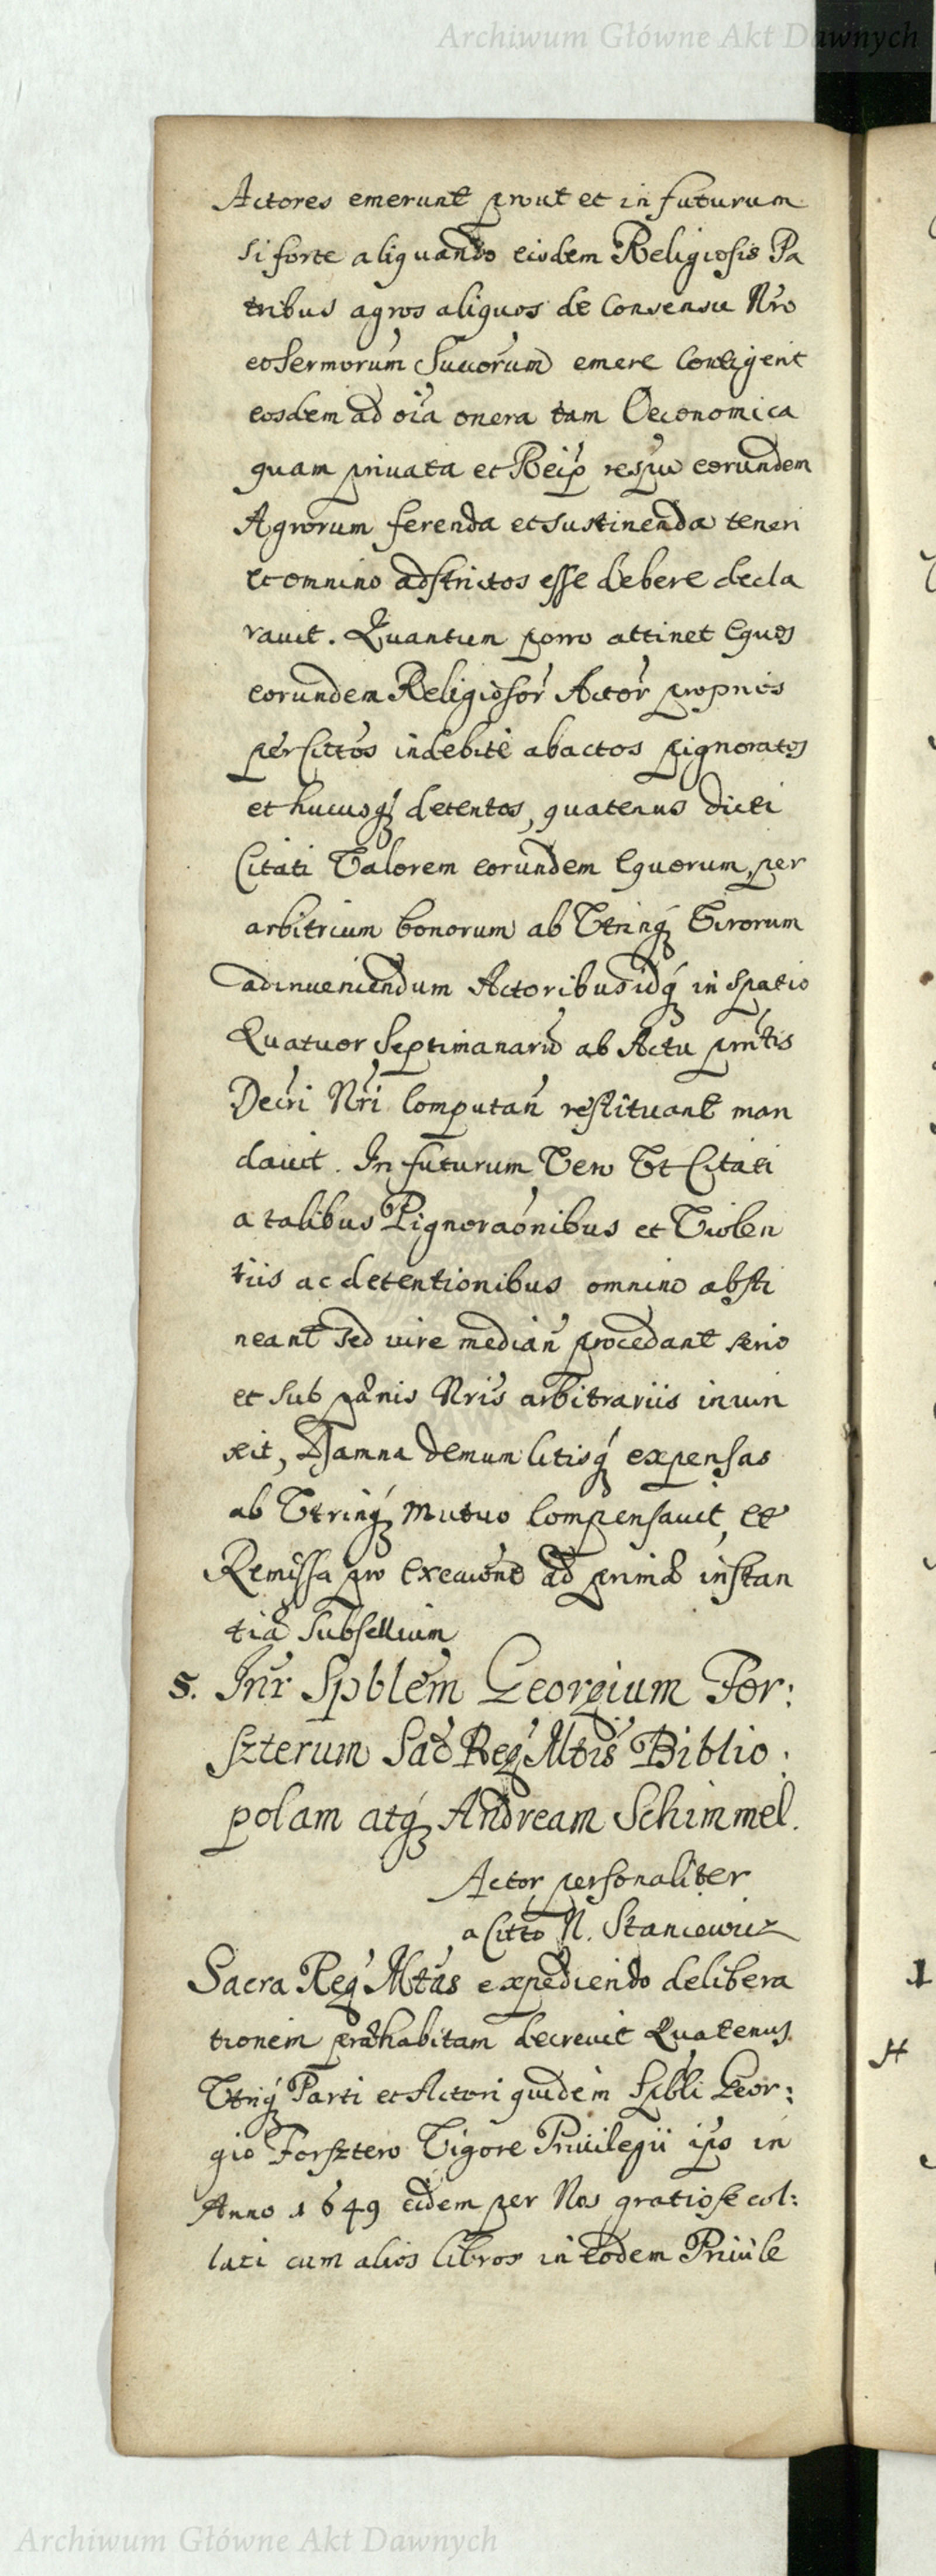 Archiwum Główne Akt Dawnych
Actores emerunt prout et in futurum
si forte aliquando eisdem Religiosis Pa
tribus agros aliquos de Consensu Nro
et Sermorum Succorum emere Contigerit
eosdem ad oia onera tam Oeconomica
quam privata et Reip respu eorundem
Agrorum ferenda et sustinenda teneri
et omnino adstrictos esse debere decla
ravit. Quantum porro attinet Equos
eorundem Religiosor Actor proprios
per Cittos indebite abactos pignoratos
et hucusq detentos, quatenus dicti
Citati Valorem eorundem Equorum, per
arbitrium bonorum ab Utrinq Virorum
adinueniendum Actoribus idq in spatio
Quatuor Septimanaru ab Actu pntis
Decri Nri Computan restituant man
davit. In futurum Vero Ut Citati
a talibus Pignoraonibus et Violen
tiis ac detentionibus omnino absti
neant sed iure median procedant serio
et sub pænis Nris arbitrariis iniun
xit, Damna demum litisq expensas
ab Utrinq Mutuo Compensavit, et
Remissa pro Execuone ad primæ instan
tiæ Subsellium
5. Inr Spblem Georgium For:
szterum Sac Reg Mtis Biblio:
polam atq Andream Schimmel.
Actor personaliter
a Citto N. Stancewicz
Sacra Reg Mtas expediendo delibera
tionem præhabitam decrevit Quatenus
Utriq Parti et Actori quidem Spbli Geor:
gio Forsztero Vigore Privilegii ipso in
Anno 1649 eidem per Nos gratiose col:
lati cum alios libros in eodem Privile
Archiwum Główne Akt Dawnych